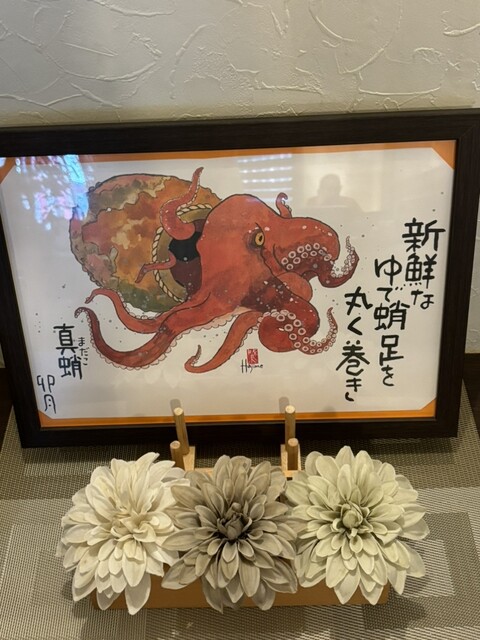 新鮮な
ゆで蛸足を
丸く巻き
真蛸
まだこ
卯月
Hajime